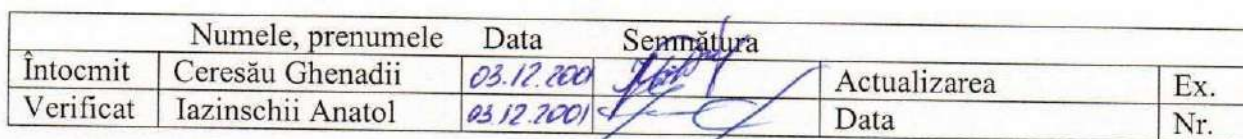 Numele, prenumele Data Semnătura
Întocmit Ceresău Ghenadii 03.12.200 Actualizarea Ex.
Verificat Iazinschii Anatol 03.12.2001 Data Nr.